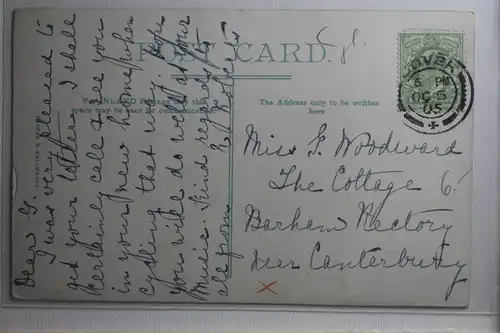 POST CARD.
For INLAND Postage only this
space may be used for communication.
The Address only to be written
here
DOVER
6 PM
OC 5
05
Dear G.
I was very pleased to
get your letter. I shall
certainly call & see you
in your new home when
cycling that way. Hope
you will do well at your
music. Kind regards to
all from
Miss G. Woodward
The Cottage
Barham Rectory
near Canterbury